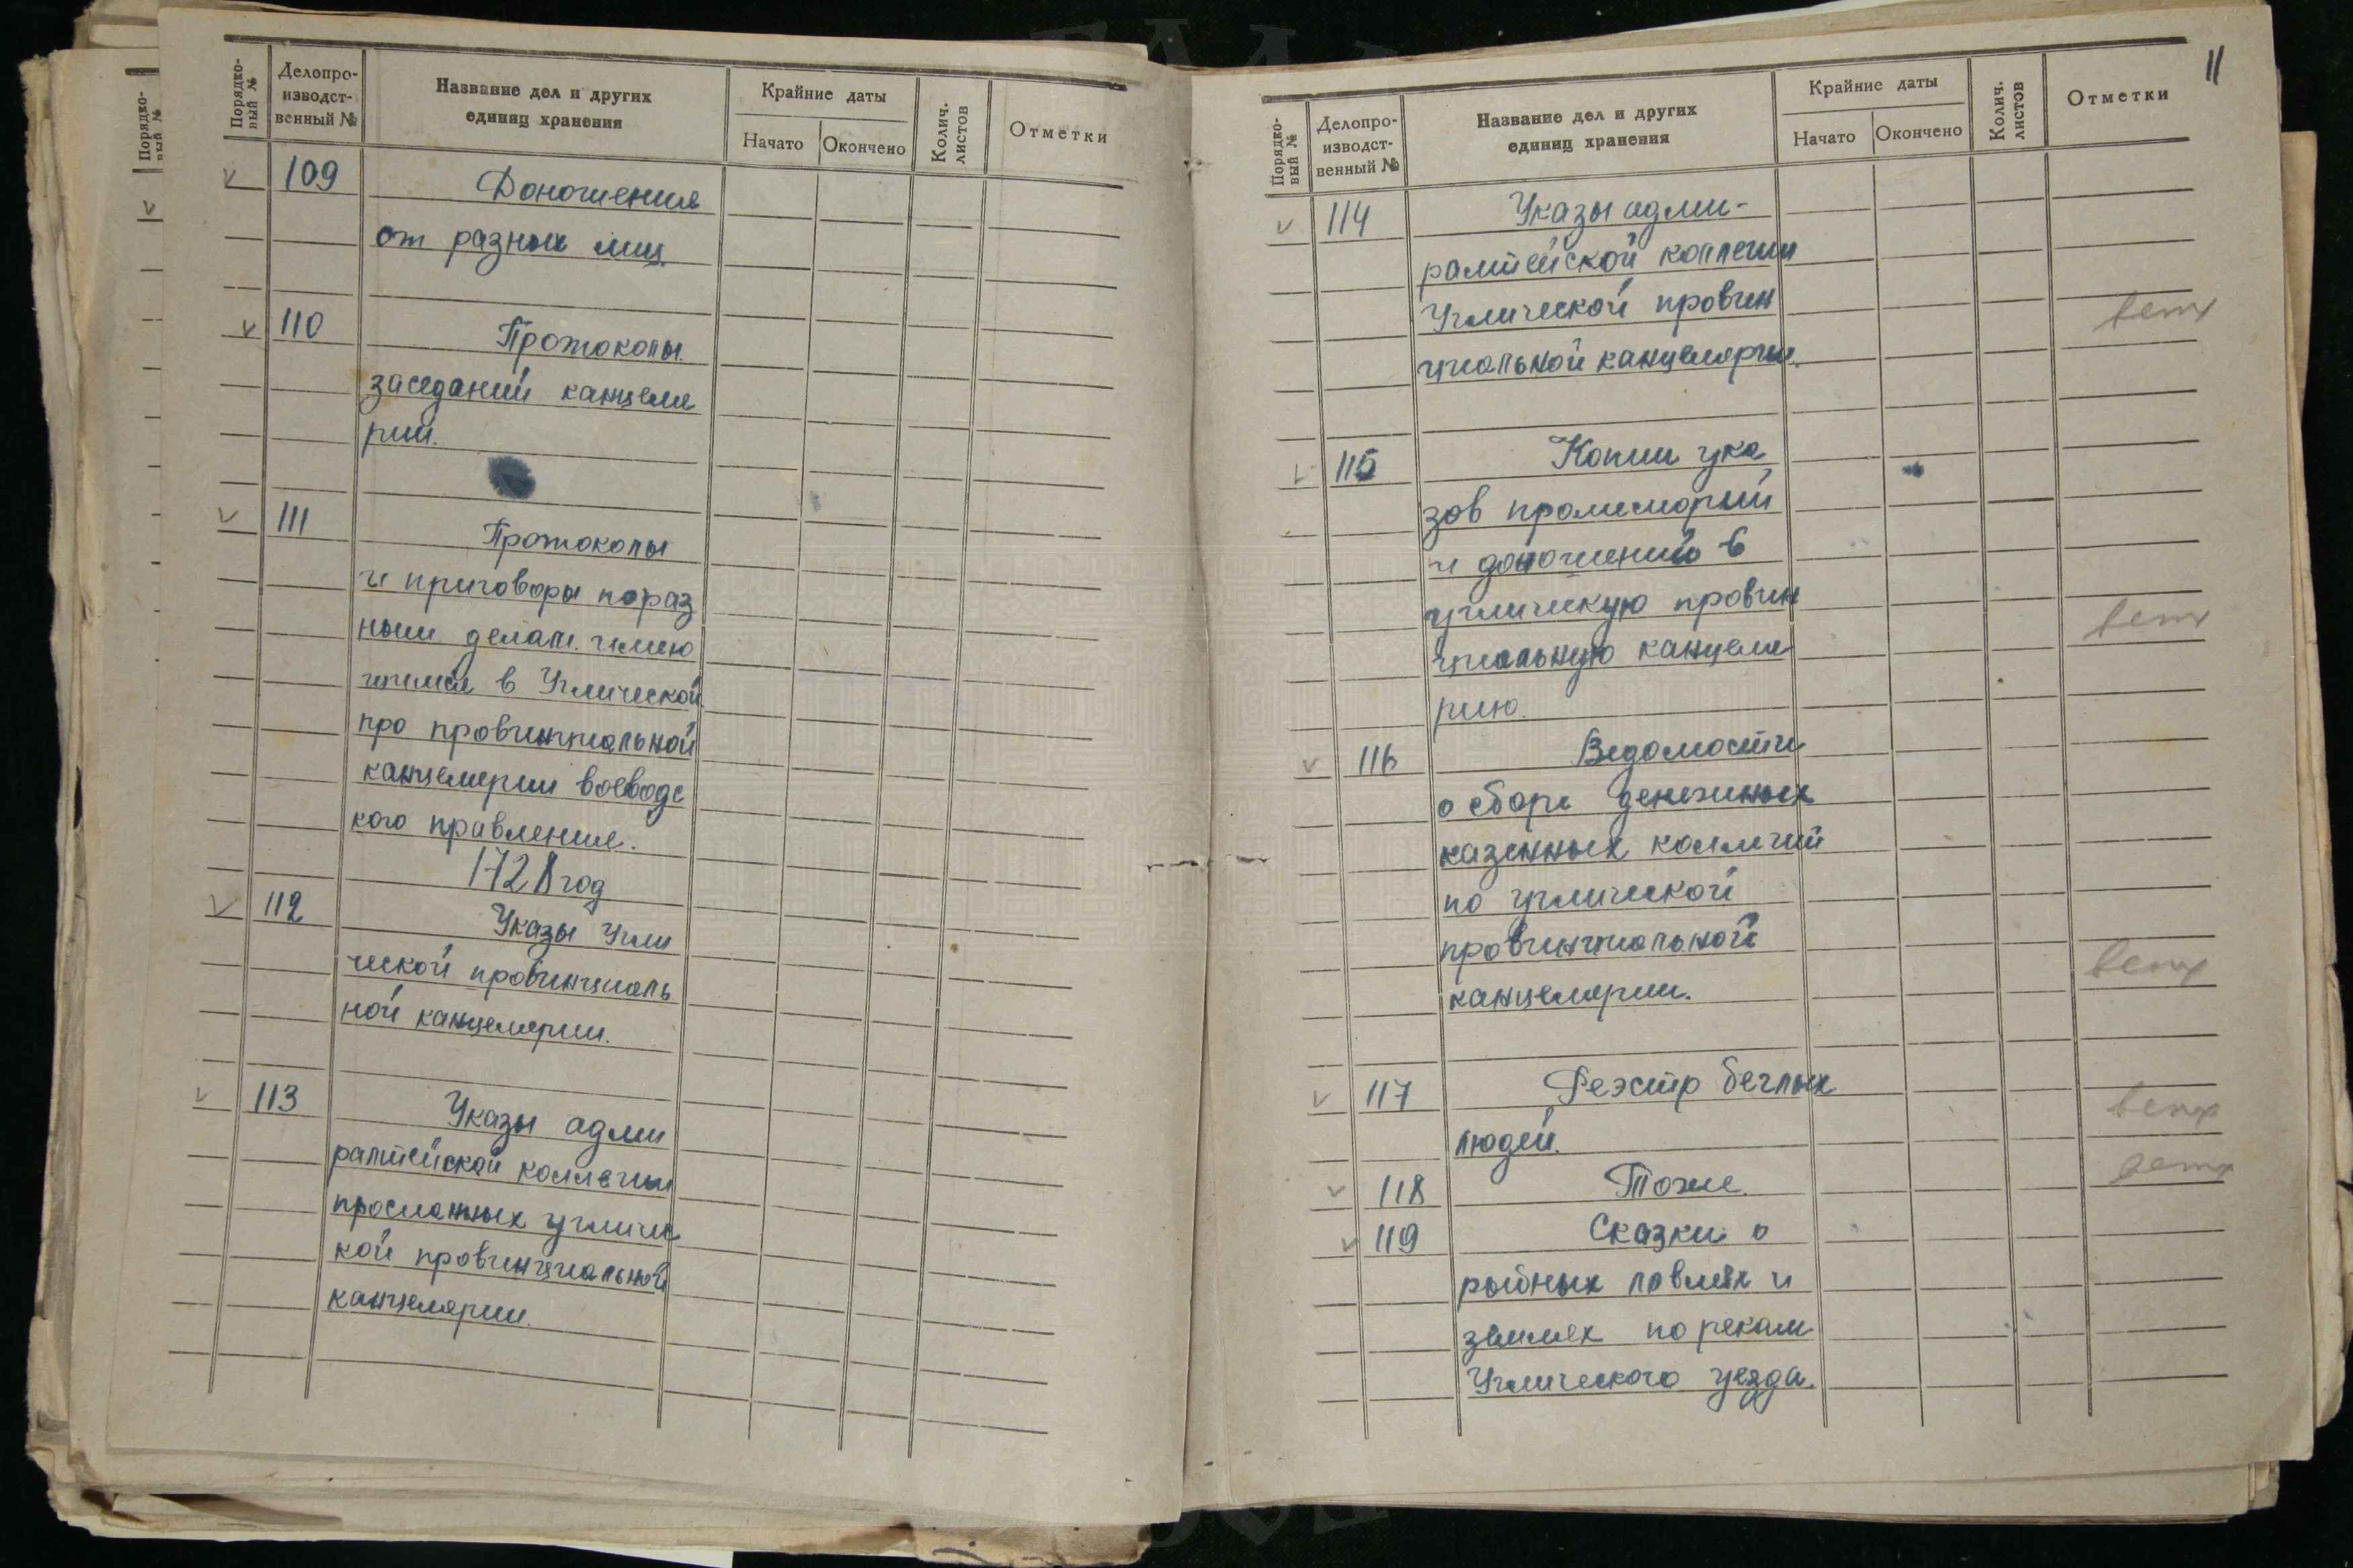 Порядко-
вый №
Порядко-
вый №
Делопро-
изводст-
венный №
Название дел и других
единиц хранения
Крайние даты
Начато
Окончено
Колич.
листов
Отметки
109 Доношения
от разных лиц
110 Протоколы
заседаний канцеля
рии.
111 Протоколы
и приговоры по раз
ным делам. имею
щимся в Угличской
про провинциальной
канцелярии воеводс
кого правления.
1728 год
112 Указы Угли
ческой провинциаль
ной канцелярии.
113 Указы адми
ралтейской коллегии
просланных угличс
кой провинциальной
канцелярии.
11
Порядко-
вый №
Делопро-
изводст-
венный №
Название дел и других
единиц хранения
Крайние даты
Начато
Окончено
Колич.
листов
Отметки
114 Указы адми-
ралтейской коллегии
Углической провин
ветх
циальной канцелярии.
115 Копии ука
зов промеморий
и доношений в
угличскую провин
ветх
циальную канцеля
рию.
116 Ведомости
о сборе денежных
казенных
по углической
провинциальной
ветх
канцелярии.
117 Реэстр беглых
ветх
людей.
118 Тоже.
ветх
119 Сказки о
рыбных ловлях и
землях по рекам
Углического уезда.